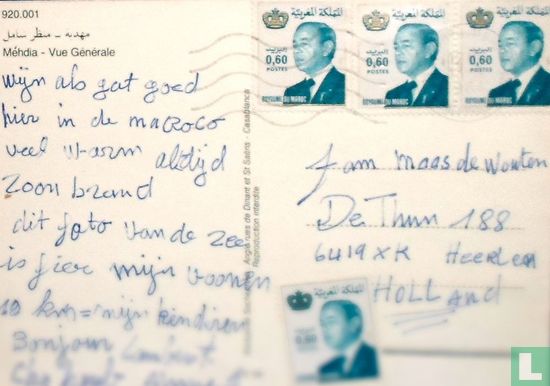 920.001
مهدية - منظر شامل
Méhdia - Vue Générale
wijn als gat goed
hier in de maroco
veel warm altijd
Zoon brand
dit foto van de zee
is fier mijn voonen
10 km = mijn kindiren
Bonjour Lambert
fam maas de Wouten
De Thun 188
6419 XK Heerlen
HOLLAND
Angle rues de Dinant et St Saëns - Casablanca
Reproduction interdite
المملكة المغربية
البريد
0,60
POSTES
ROYAUME DU MAROC
المملكة المغربية
البريد
0,60
POSTES
ROYAUME DU MAROC
المملكة المغربية
البريد
0,60
POSTES
ROYAUME DU MAROC
المملكة المغربية
0,60
Catawiki